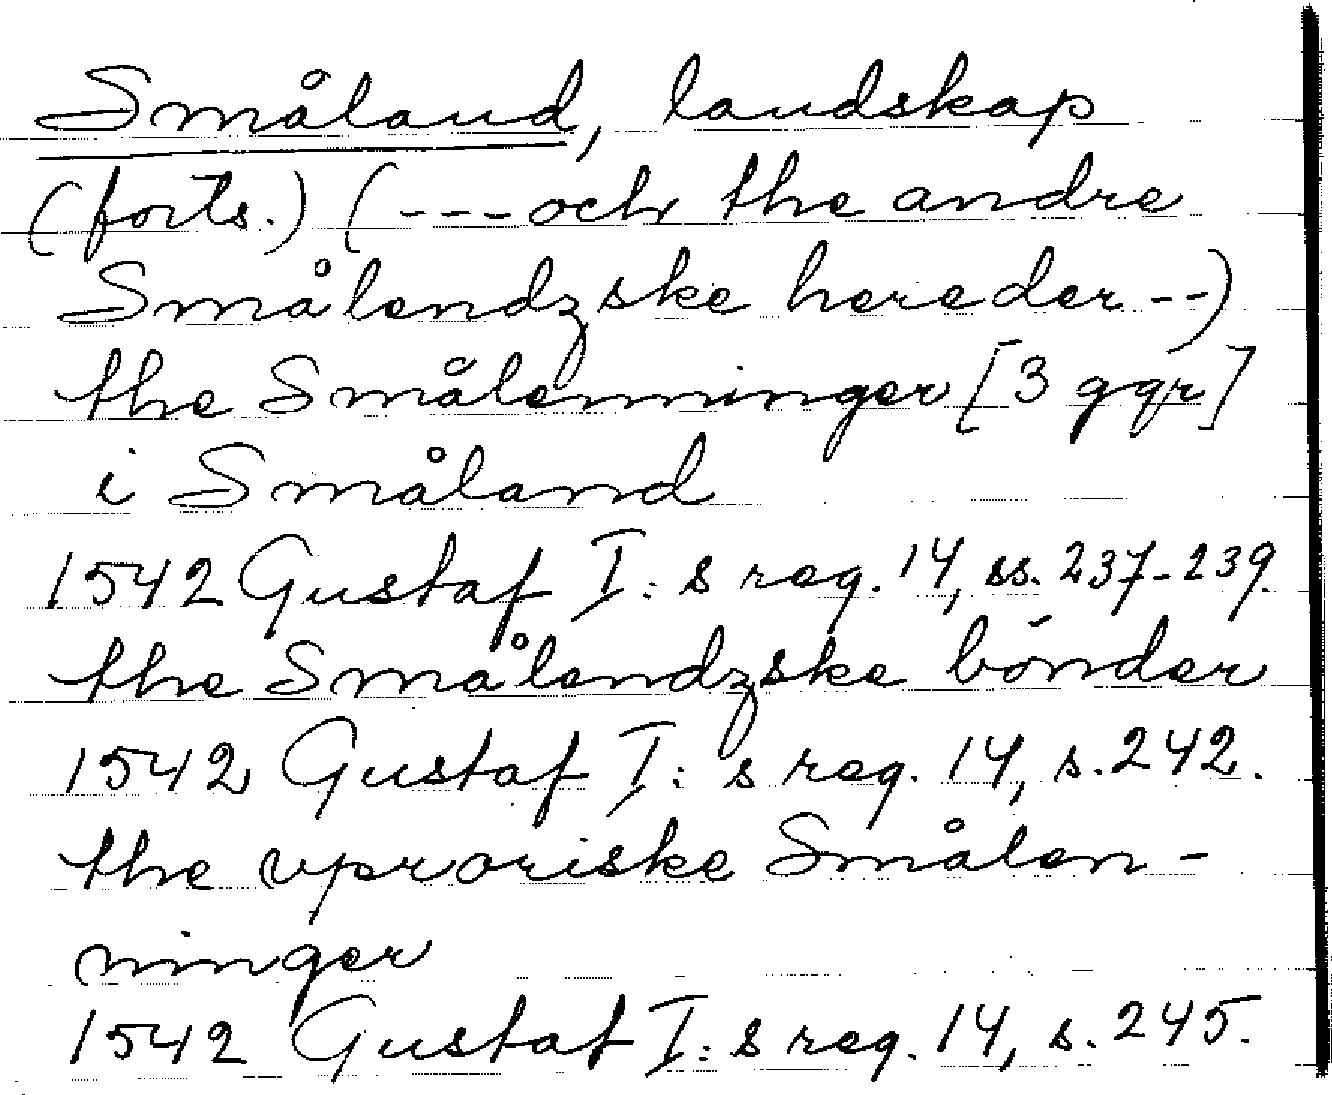 Småland, landskap
(forts.) (---och the andre
Smålendzske hereder--)
the Smålenninger [3 ggr]
i Småland
1542 Gustaf I:s reg. 14, ss. 237-239.
the Smålendzske bönder
1542 Gustaf I:s reg. 14, s. 242.
the vproriske Smålen-
ninger
1542 Gustaf I:s reg. 14, s. 245.